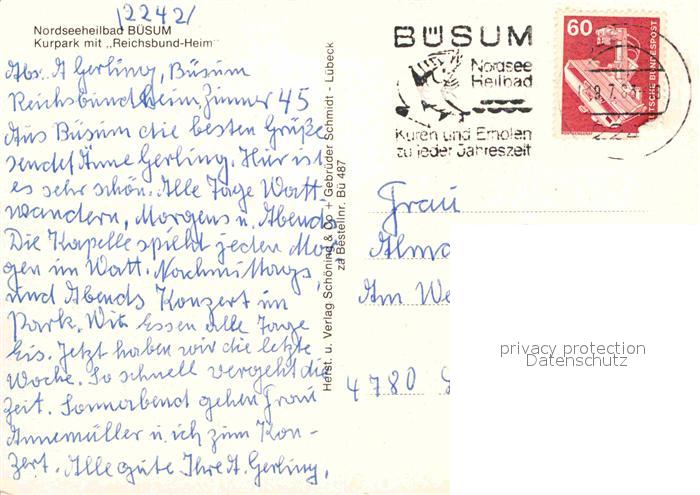 (2242)
Nordseeheilbad BÜSUM
Kurpark mit „Reichsbund-Heim"
Abs. A Gerling, Büsum
Reichsbundheim, Zimmer 45
Aus Büsum die besten Grüße
sendet Änne Gerling. Hier ist
es sehr schön. Alle Tage Watt-
wandern, Morgens u. Abend.
Die Kapelle spieht jeden Mor
gen im Watt. Nachmittags,
und Abends Konzert im
Park. Wir Essen alle Tage
Eis. Jetzt haben wir die letzte
Woche. So schnell vergeht die
Zeit. Sonnabend gehen Frau
Annemüller u. ich zum Kon-
zert. Alle gute Ihre A. Gerling.
Herst. u. Verlag Schöning & Co + Gebrüder Schmidt - Lübeck
zu Bestellnr. Bü 487
BÜSUM
Nordsee
Heilbad
Kuren und Erholen
zu jeder Jahreszeit
60
DEUTSCHE BUNDESPOST
Frau
Am We
4780
privacy protection
Datenschutz